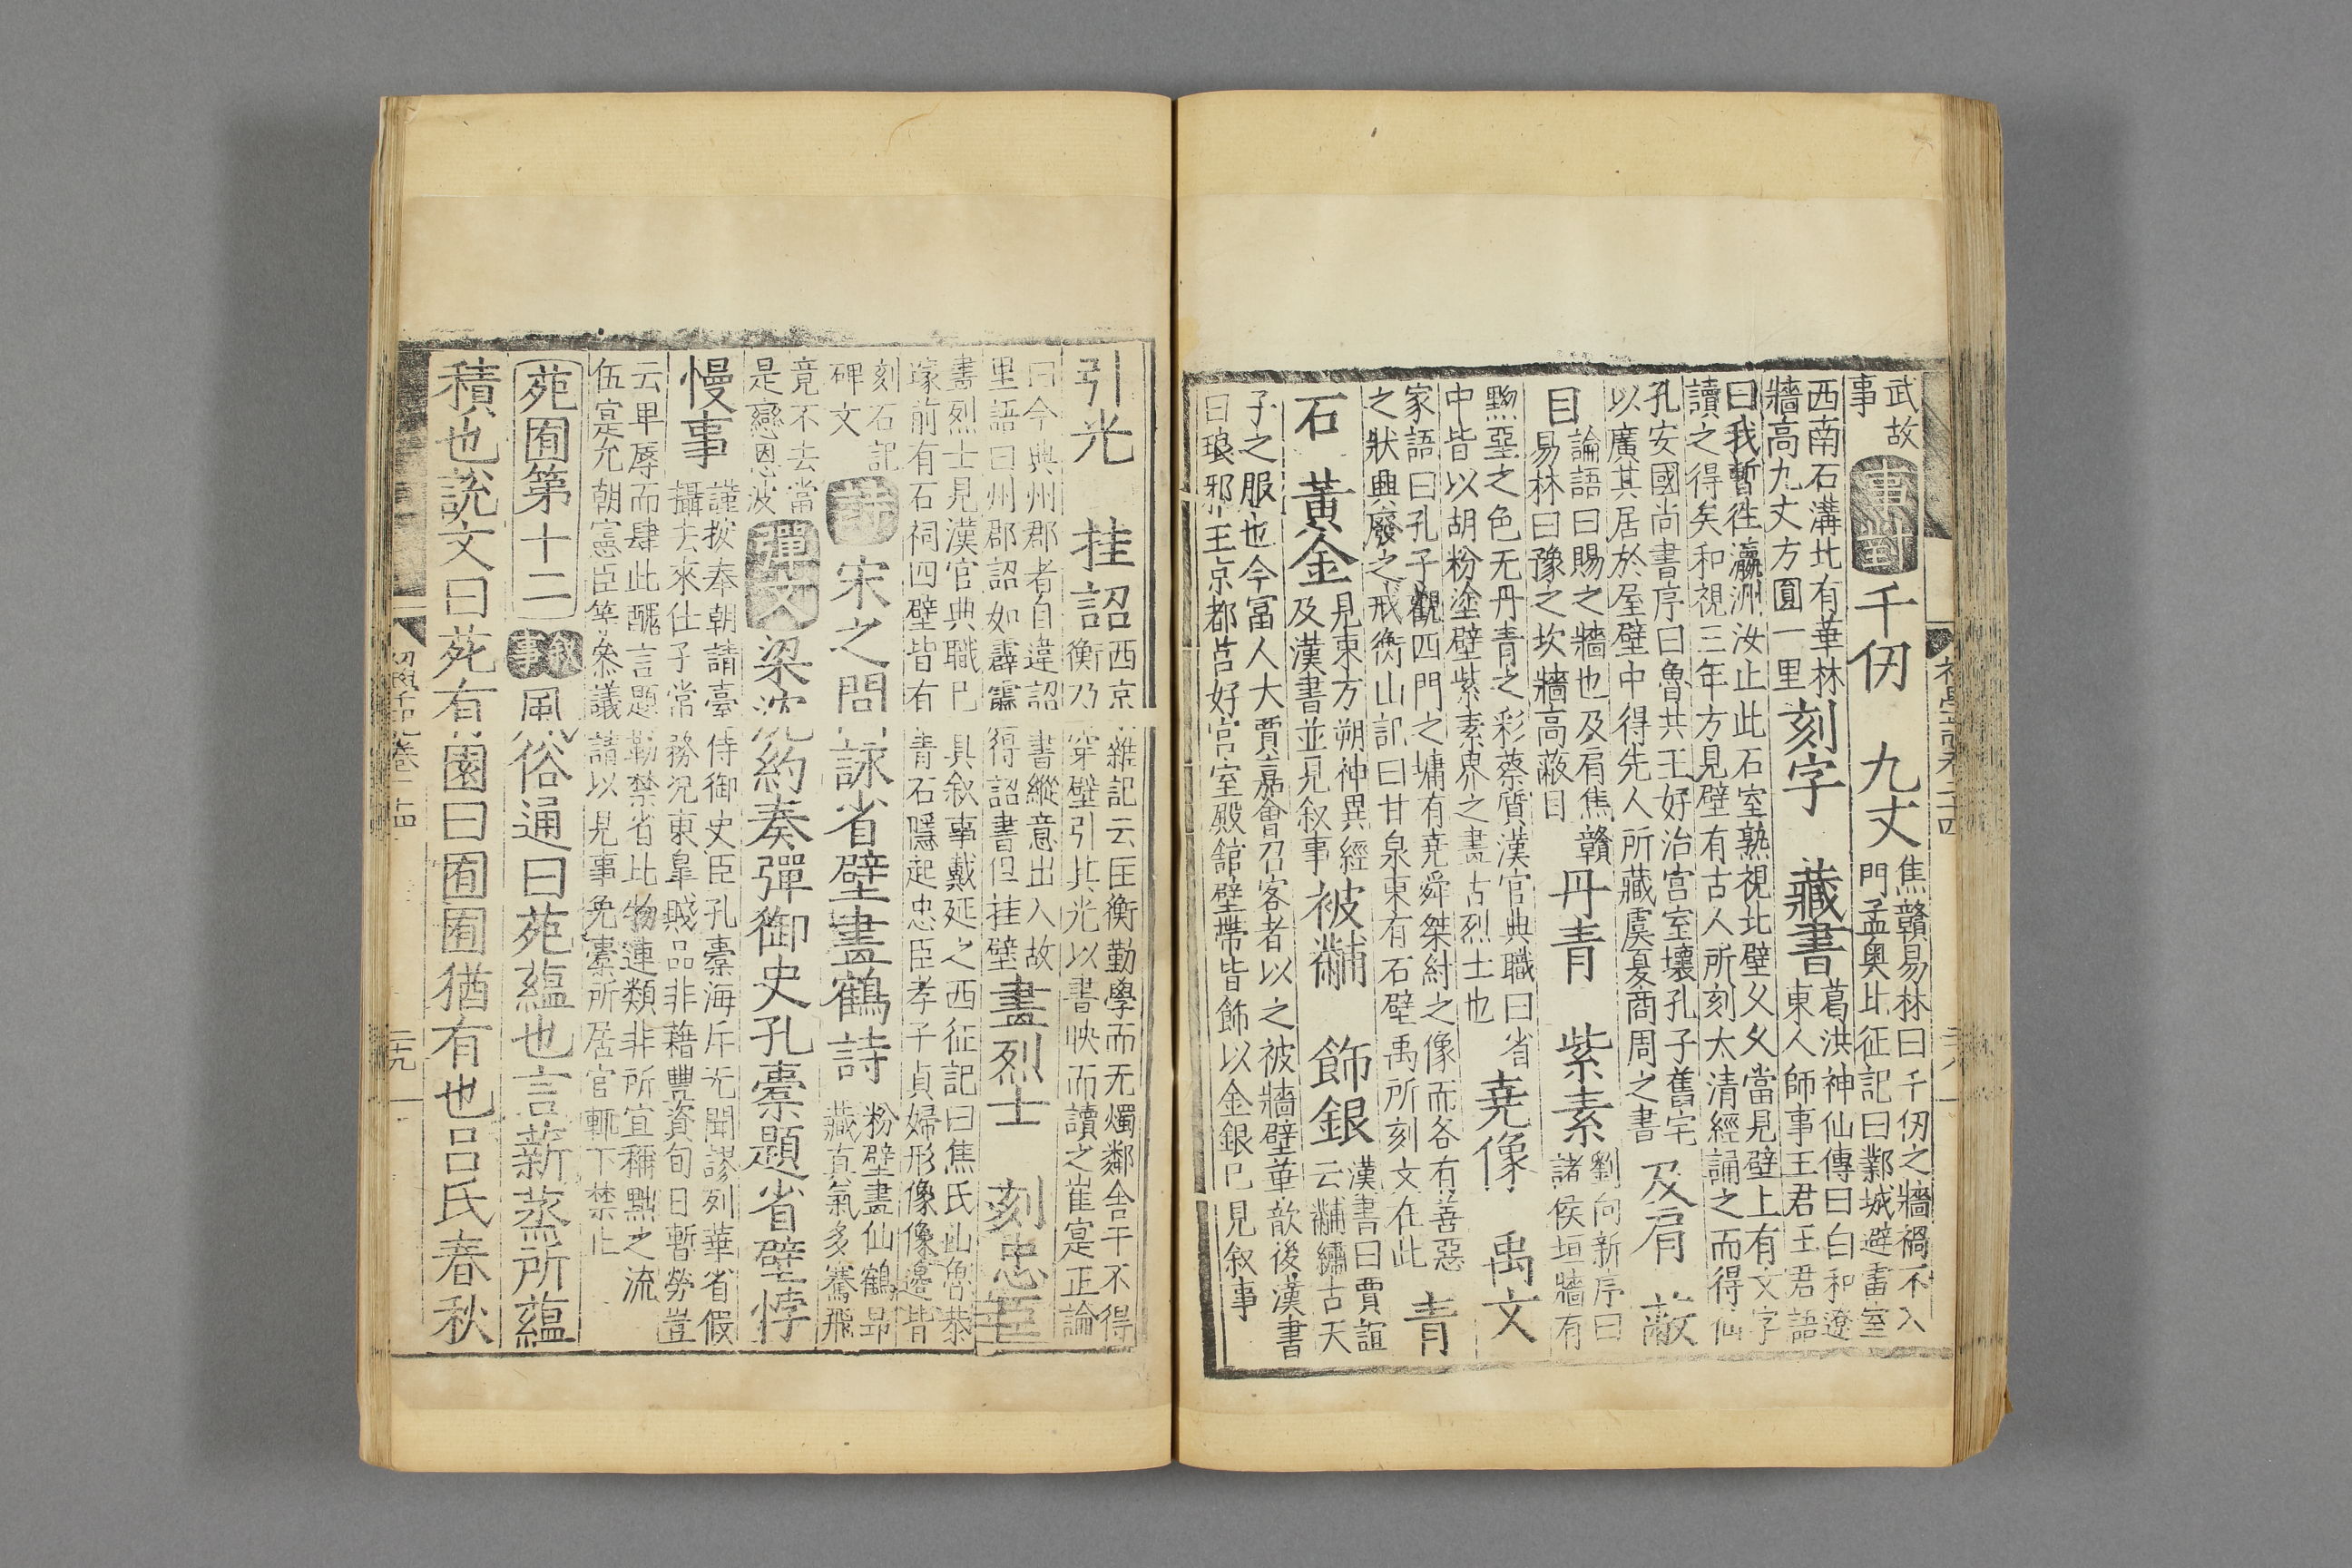 武故
事
事對
千仞 九丈
焦贛易林曰千仞之牆禍不入
門孟奥北征記曰鄴城避雷室
西南石溝北有華林
牆高九丈方圓一里
刻字 藏書
葛洪神仙傳曰白和遼
東人師事王君王君語
曰我暫往瀛洲汝止此石室熟視北壁父父當見壁上有文字
讀之得矣和視三年方見壁有古人所刻太清經誦之而得仙
孔安國尚書序曰魯共王好治宫室壞孔子舊宅
以廣其居於屋壁中得先人所藏虞夏商周之書
及肩 蔽
目
論語曰賜之牆也及肩焦贛
易林曰豫之坎牆高蔽目
丹青 紫素
劉向新序曰
諸侯垣牆有
黝堊之色无丹青之彩蔡質漢官典職曰省
中皆以胡粉塗壁紫素界之畫古烈士也
堯像 禹文
家語曰孔子觀四門之墉有堯舜桀紂之像而各有善惡
之狀興廢之戒衡山記曰甘泉東有石壁禹所刻文在此
青
石 黃金
見東方朔神異經
及漢書並見叙事
被黼 飾銀
漢書曰賈誼
云黼繡古天
子之服也今富人大賈嘉會召客者以之被牆壁華歆後漢書
曰琅邪王京都莒好宫室殿舘壁帶皆飾以金銀已見叙事
引光 挂詔
西京雜記云匡衡勤學而无燭鄰舍干不得
衡乃穿壁引其光以書映而讀之崔寔正論
曰今典州郡者自違詔書縱意出入故
里語曰州郡詔如霹靂得詔書但挂壁
畫烈士 刻忠臣
書烈士見漢官典職已具叙事戴延之西征記曰焦氏山魯恭
塚前有石祠四壁皆有青石隱起忠臣孝子貞婦形像像邊皆
刻石記
碑文
詩
宋之問詠省壁畫鶴詩
粉壁畫仙鶴昂
藏真氣多騫飛
竟不去當
是戀恩波
彈文
梁沈約奏彈御史孔橐題省壁悖
慢事
謹按奉朝請臺侍御史臣孔橐海斥无聞謬列華省假
攝去來仕子常務況東皐賤品非藉豐資旬日暫勞豈
云卑辱而肆此醜言題勒禁省比物連類非所宜稱黜之流
伍寔允朝憲臣等叅議請以見事免橐所居官輒下禁止
苑囿第十二
叙事
風俗通曰苑蘊也言薪蒸所蘊
積也說文曰苑有園曰囿囿猶有也吕氏春秋
初學記卷二十四
二十九